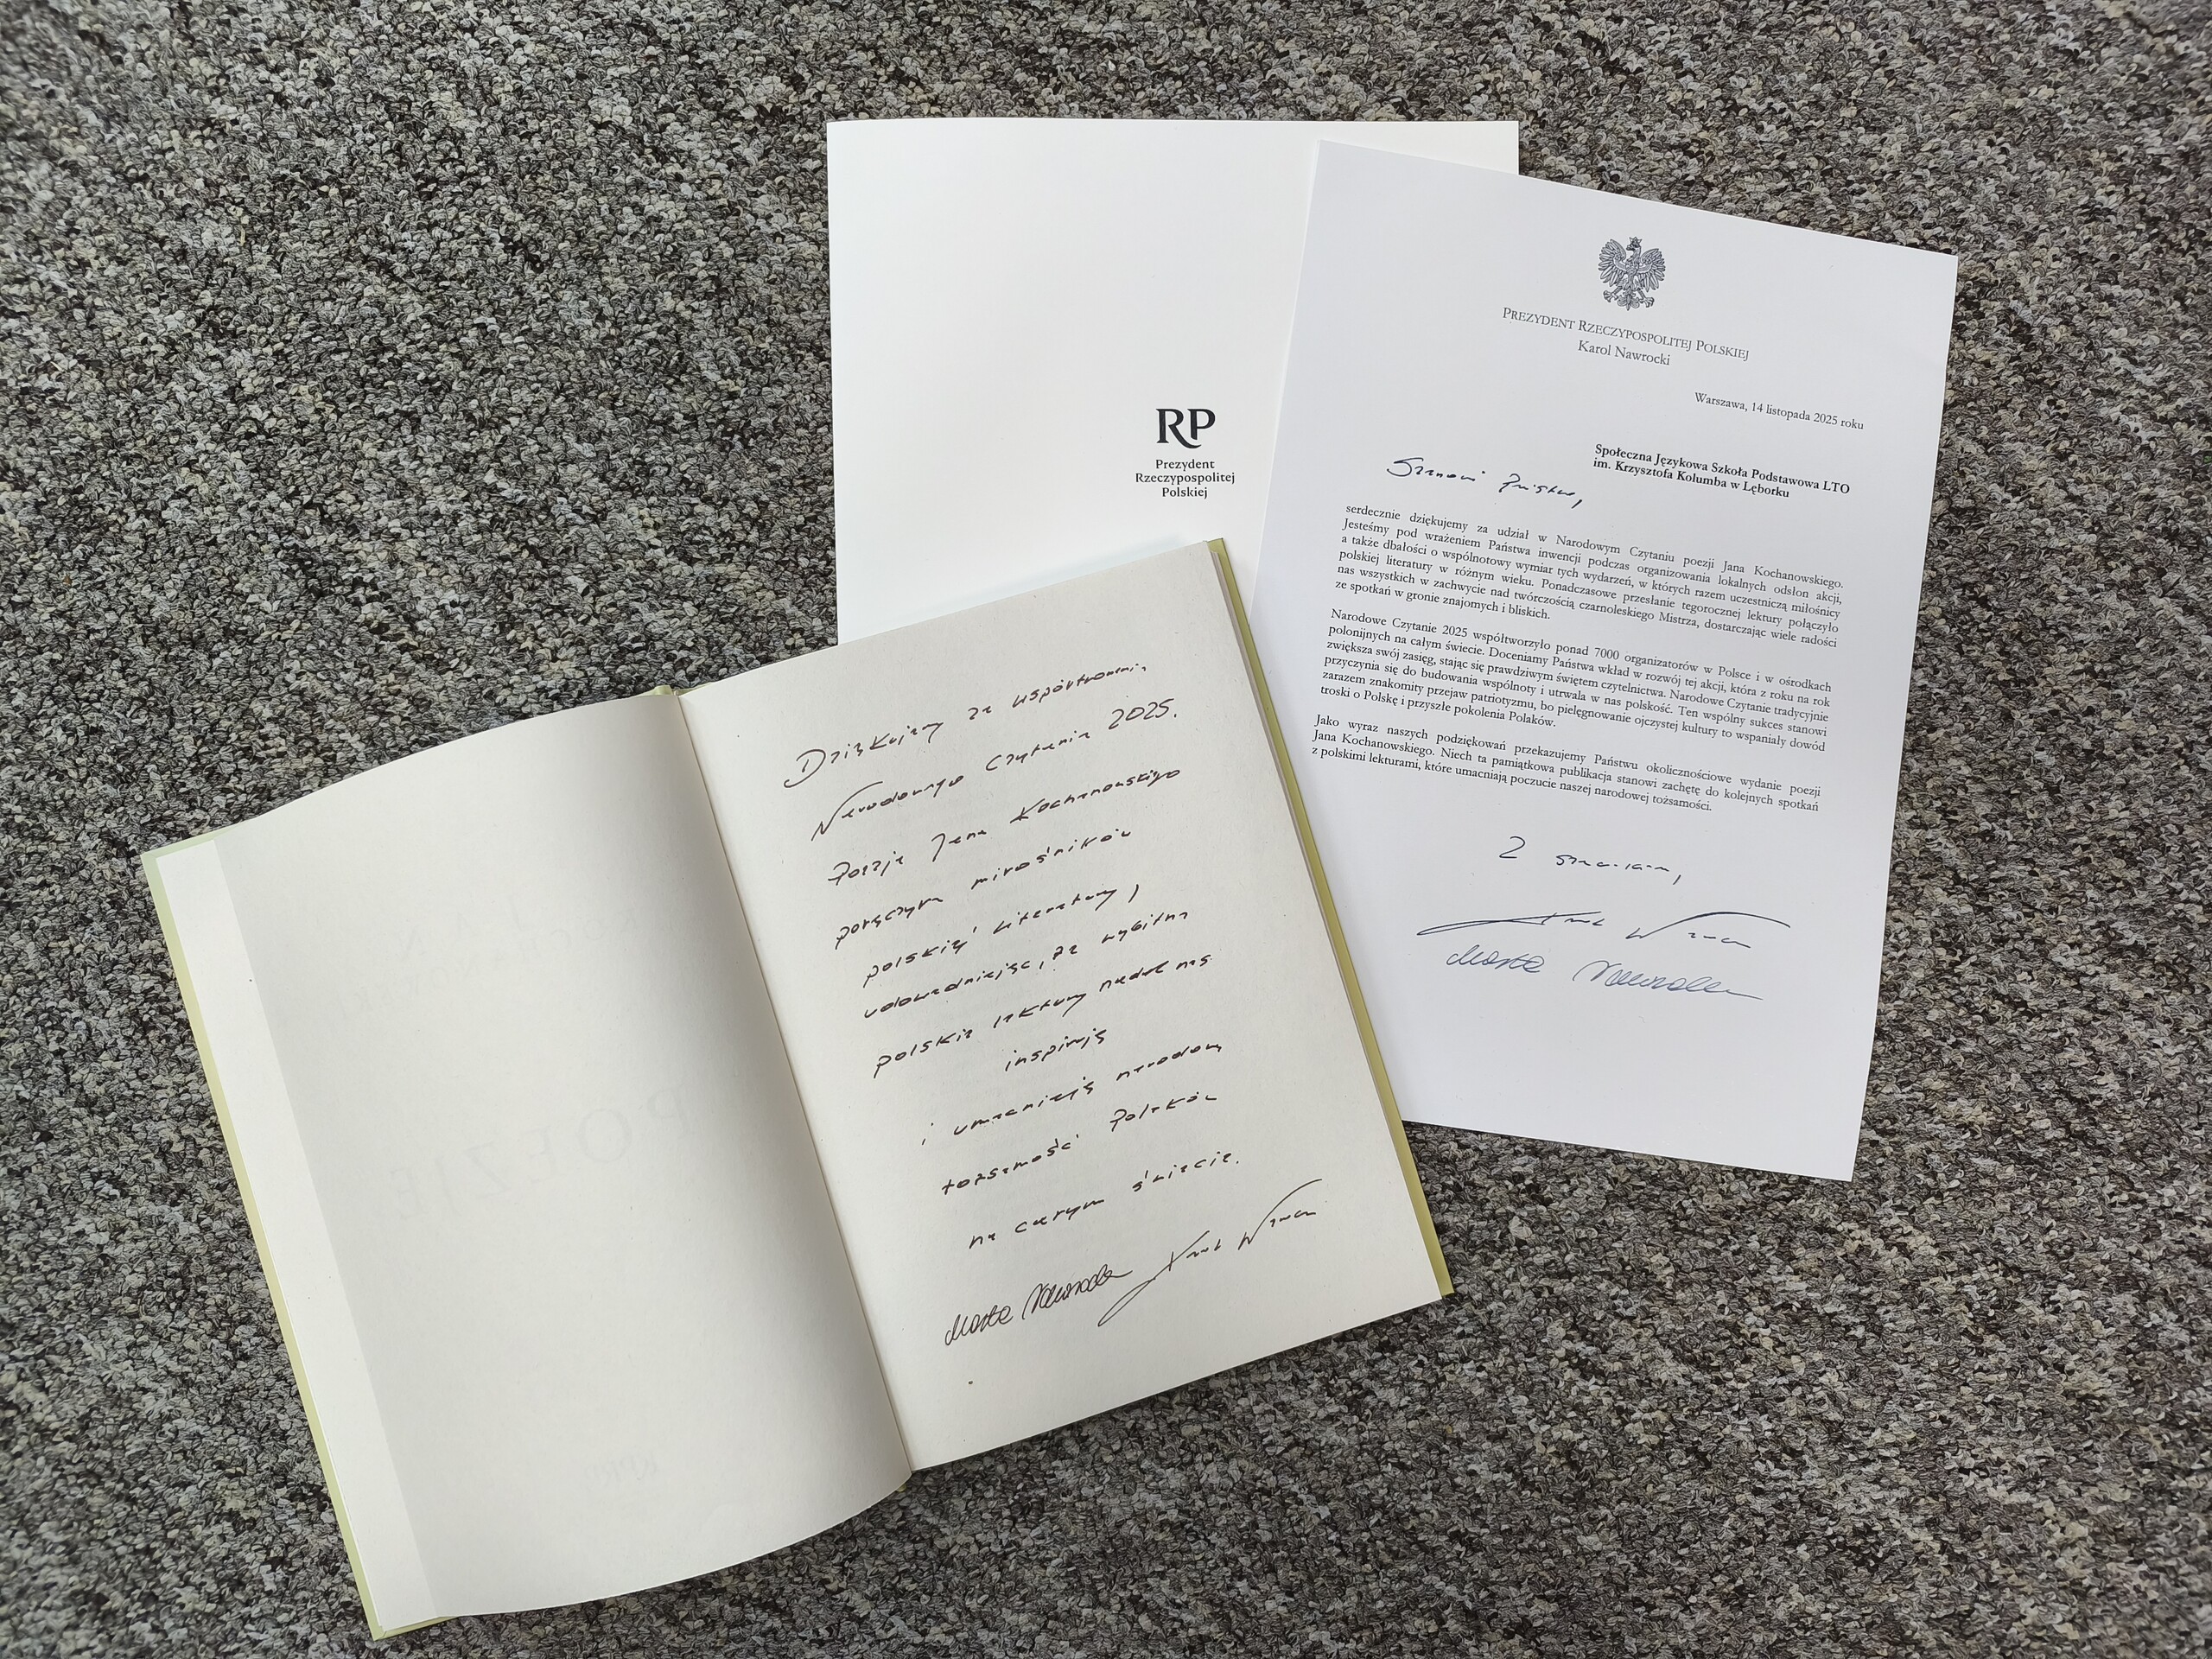 RP
Prezydent
Rzeczypospolitej
Polskiej
PREZYDENT RZECZYPOSPOLITEJ POLSKIEJ
Karol Nawrocki
Warszawa, 14 listopada 2025 roku
Społeczna Językowa Szkoła Podstawowa LTO
im. Krzysztofa Kolumba w Lęborku
Szanowni Państwo,
serdecznie dziękujemy za udział w Narodowym Czytaniu poezji Jana Kochanowskiego.
Jesteśmy pod wrażeniem Państwa inwencji podczas organizowania lokalnych odsłon akcji,
a także dbałości o wspólnotowy wymiar tych wydarzeń, w których razem uczestniczą miłośnicy
polskiej literatury w różnym wieku. Ponadczasowe przesłanie tegorocznej lektury połączyło
nas wszystkich w zachwycie nad twórczością czarnoleskiego Mistrza, dostarczając wiele radości
ze spotkań w gronie znajomych i bliskich.
Narodowe Czytanie 2025 współtworzyło ponad 7000 organizatorów w Polsce i w ośrodkach
polonijnych na całym świecie. Doceniamy Państwa wkład w rozwój tej akcji, która z roku na rok
zwiększa swój zasięg, stając się prawdziwym świętem czytelnictwa. Narodowe Czytanie tradycyjnie
przyczynia się do budowania wspólnoty i utrwala w nas polskość. Ten wspólny sukces stanowi
zarazem znakomity przejaw patriotyzmu, bo pielęgnowanie ojczystej kultury to wspaniały dowód
troski o Polskę i przyszłe pokolenia Polaków.
Jako wyraz naszych podziękowań przekazujemy Państwu okolicznościowe wydanie poezji
Jana Kochanowskiego. Niech ta pamiątkowa publikacja stanowi zachętę do kolejnych spotkań
z polskimi lekturami, które umacniają poczucie naszej narodowej tożsamości.
Z szacunkiem,
Marta Nawrocka
Dziękujemy za współtworzenie
Narodowego Czytania 2025.
Poezja Jana Kochanowskiego
połączyła miłośników
polskiej literatury,
udowadniając, że wybitne
polskie lektury nadal nas
inspirują
i umacniają narodową
tożsamość Polaków
na całym świecie.
Marta Nawrocka
POEZJE